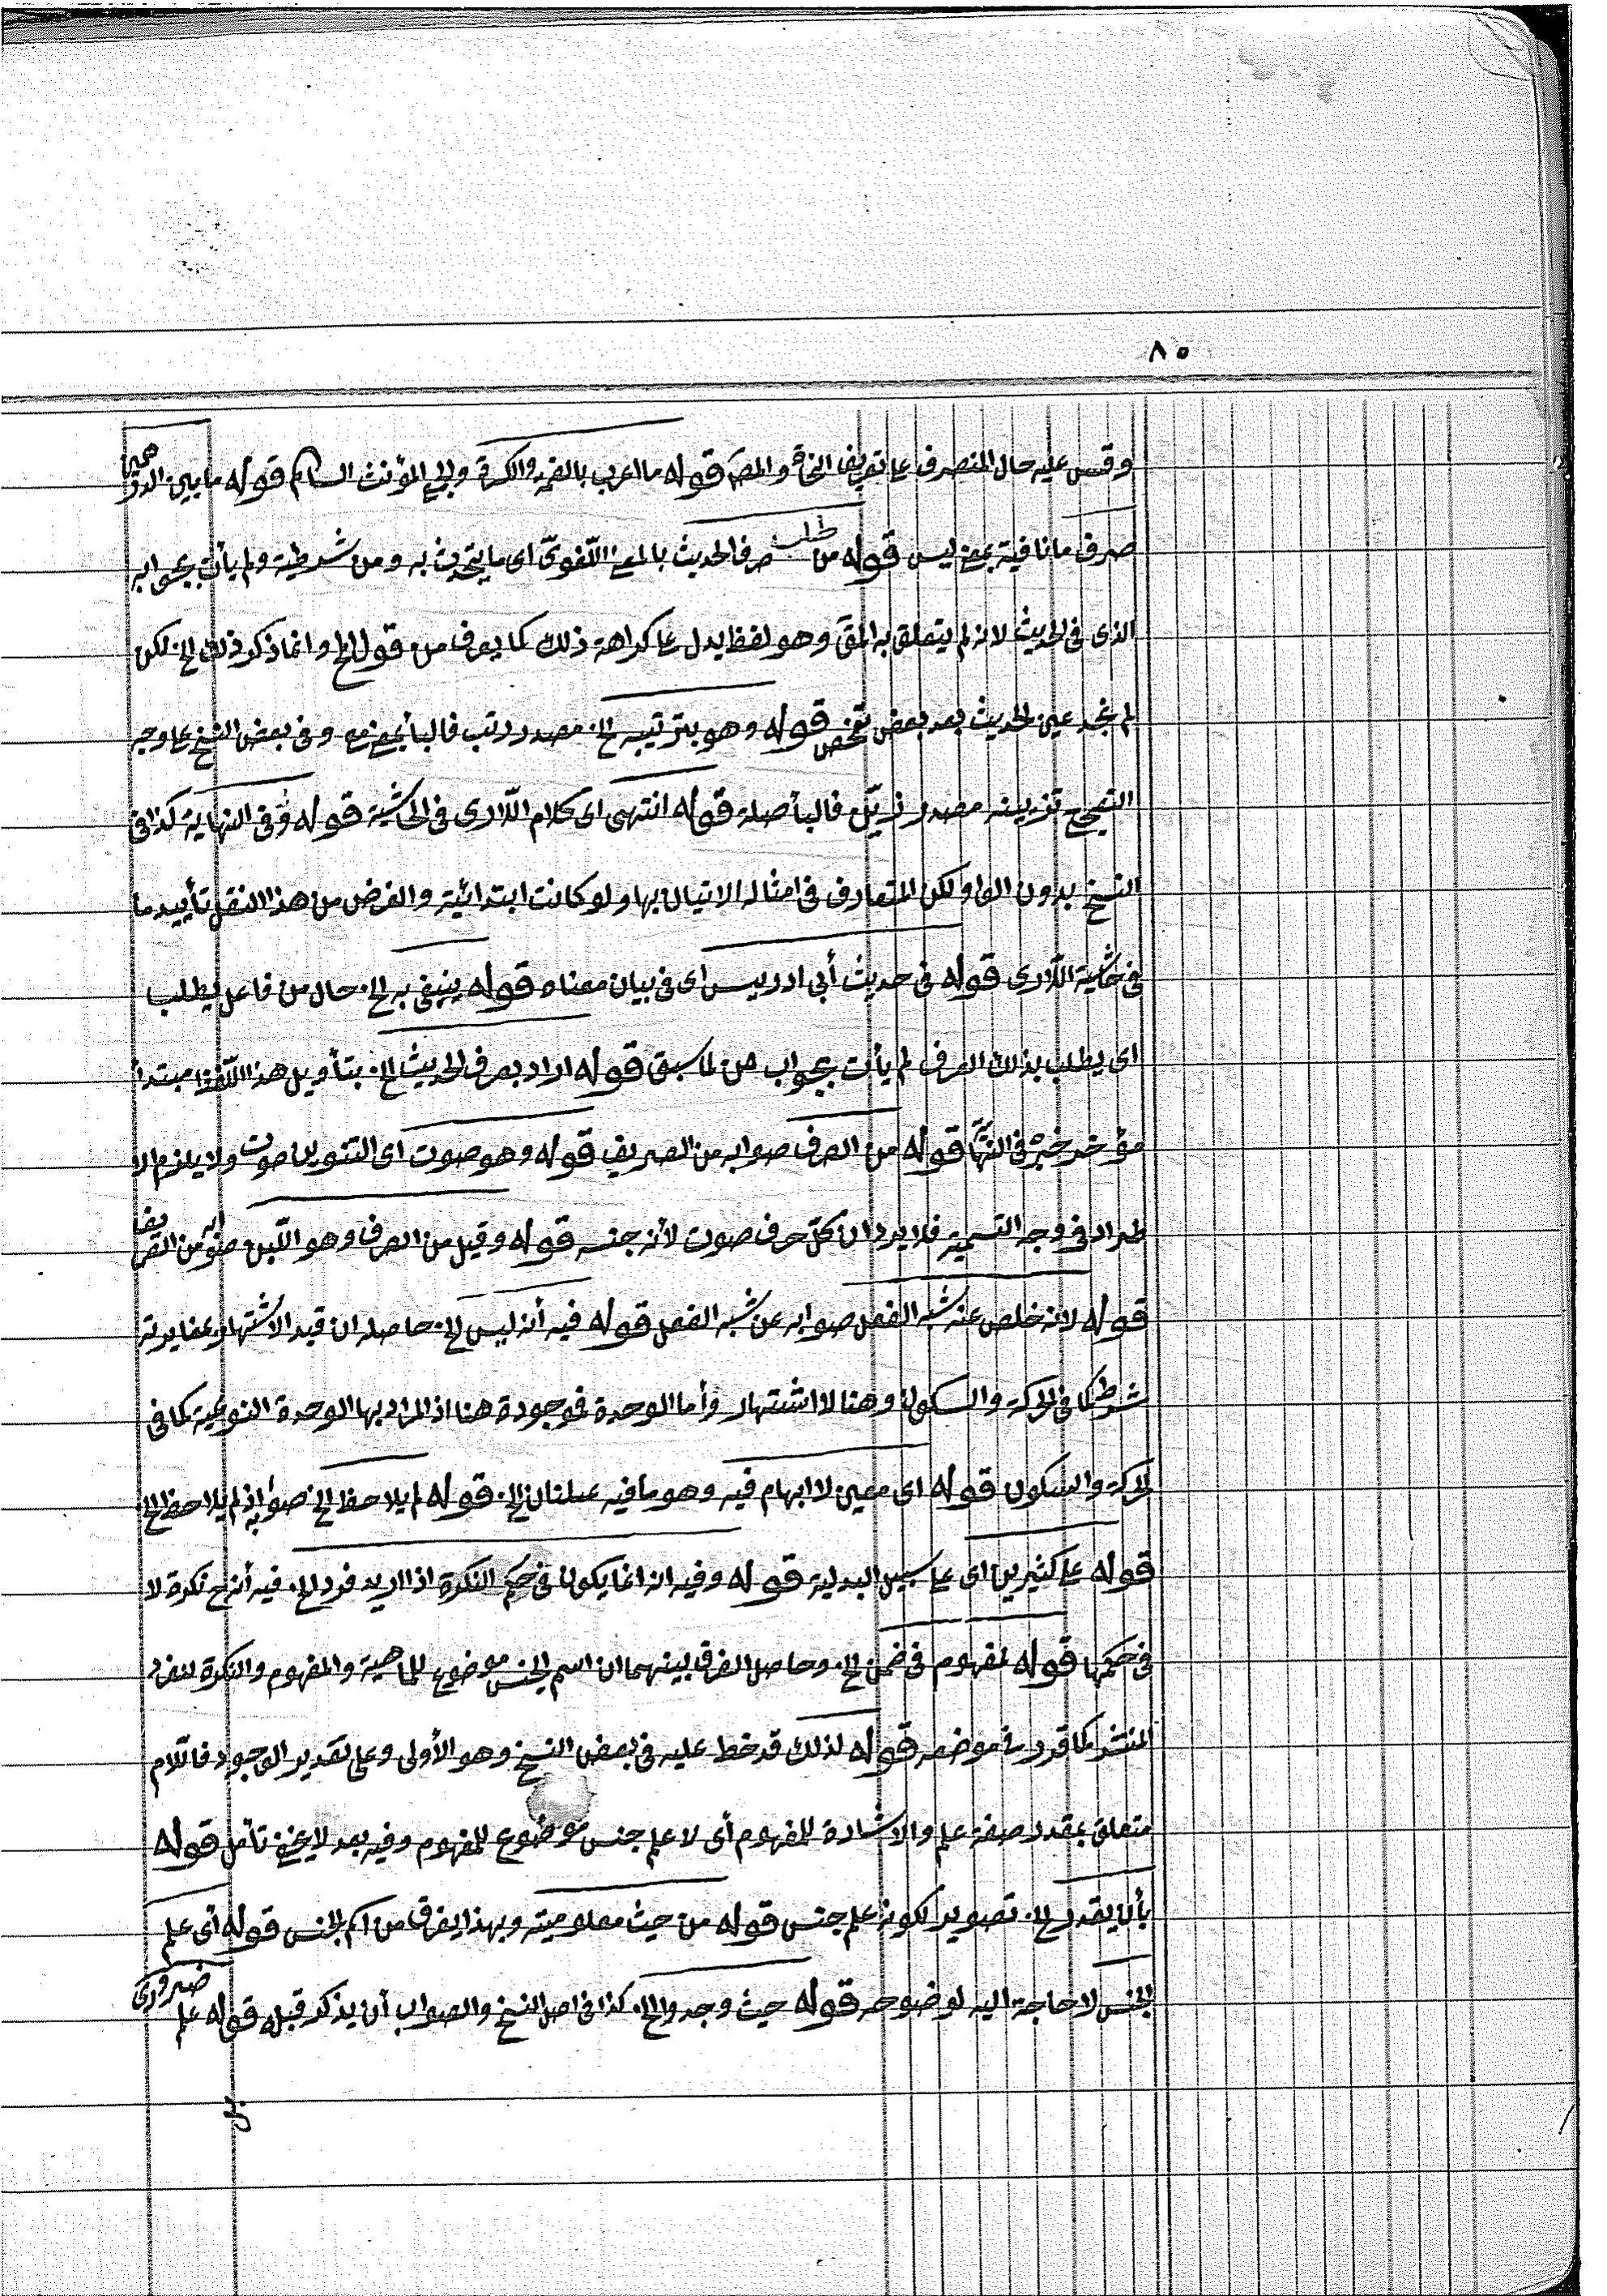 ٨٥
وقس عليه حال المنصرف على تعريف النحاة والمصـ قوله ما اعرب بالضمة والكسرة وبلي المؤنث السالم قوله ما بين الدرهمين
صرف ما نافية بمعنى ليس قوله من طلب صرف الحديث بالمعنى اللغوى اى ما يتحدث به ومن شرطية ولم يأت بجوابه
الذى فى الحديث لانه لم يتعلق به المق وهو لفظ يدل على كراهة ذلك كما يعرف من قوله الخ وانما ذكر ذلك الخ لكن
لم نجد عين الحديث بعد بعض تفحص قوله وهو بترتيبه الخ مصدر رتب فالبأ بمعنى مع وفى بعض النسخ على وجه
التصحيح تزيينه مصدر زيّن فالبأ صلة قوله انتهى اى كلام اللارى فى الحاشية قوله وفى النهاية كذا فى
النسخ بدون الواو لكن المتعارف فى امثاله الاتيان بها ولو كانت ابتدائية والغرض من هذا النقل تأييد ما
فى حاشية اللارى قوله فى حديث أبى ادريس اى فى بيان معناه قوله يبتغى به الخ حال من فاعل يطلب
اى يطلب بذلك الصرف لم يأت بجواب من لما سبق قوله اراد بصرف الحديث الخ بتأويل هذا اللفظ مبتدأ
مؤخر خبره فى النهاية قوله من الصرف صوابه من الصريف قوله وهو صوت اى التنوين صوت ولا يلزم الا
طراد فى وجه التسمية فلا يرد ان كل حرف صوت لأنه جنسه قوله وقيل من الصرف وهو اللبن صوابه من الصريف
قوله لانه خلص عنه شبه الفعل صوابه عن شبه الفعل قوله فيه أنه ليس الخ حاصله ان قيد الاشتهار بمغايرته
شرط كما فى الحركة والسكون وهنا لا اشتهار وأما الوحدة فموجودة هنا اذ المراد بها الوحدة النوعية كما فى
الحركة والسكون قوله اى معين لا ابهام فيه وهو ما فيه علتان الخ قوله لم يلاحظ الخ صوابه اذ لم يلاحظ الخ
قوله على كثيرين اى على سبيل البدلية قوله وفيه انه انما يكون فى حكم النكرة اذا اريد فرد الخ فيه أنه ح نكرة لا
فى حكمها قوله لمفهوم فى ضمن الخ وحاصل الفرق بينهما ان اسم الجنس موضوع للماهية والمفهوم والنكرة لفرد
المنتشر كما قرر فى موضعه قوله لذلك قد خط عليه فى بعض النسخ وهو الأولى وعلى تقدير الوجود فاللام
متعلق بمقدر صفة علم والاشارة للمفهوم أى لا علم جنس موضوع للمفهوم وفيه بعد لا يخفى تأمل قوله
بأن يقدر الخ تصوير لكونه علم جنس قوله من حيث معلوميته وبهذا يفرق من اسم الجنس قوله أى علم
الجنس لا حاجة اليه لوضوحه قوله حيث وجدوا الخ كذا فى اصل النسخ والصواب أن يذكر قبله قوله علم ضرورى